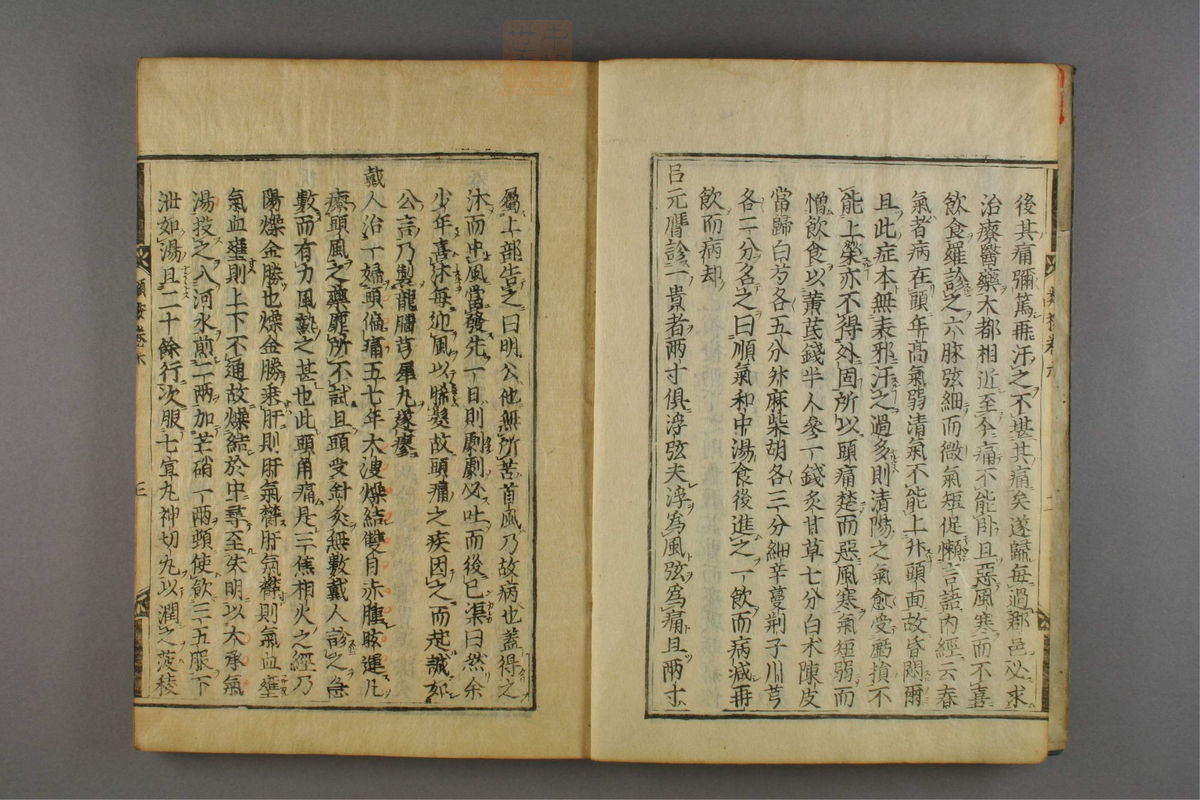 後其痛彌篤毋汗之不堪其痛矣遂歸毎過鄰邑必求
治療醫藥大都相近至今痛不能卧且惡風寒而不喜
飲食羅診之六脉弦細而微氣短促懶言語内經云春
氣者病在頭年高氣弱清氣不能上升頭面故昏悶爾
且此症本無表邪汗之過多則清陽之氣愈受虧損不
能上榮亦不得外固所以頭痛楚而惡風寒氣短弱而
憎飲食以黄芪錢半人參一錢炙甘草七分白术陳皮
當歸白芍各五分升麻柴胡各三分細辛蔓荆子川芎
各二分名之曰順氣和中湯食後進之一飲而病减再
飲而病却
呂元膺診一貴者兩寸俱浮弦夫浮為風弦為痛且兩寸
屬上部告之曰明公他無所苦首風乃故病也蓋得之
沐而中風當發先一日則劇劇必吐而後已渠曰然余
少年喜沐毎迎風以晞髮故頭痛之疾因之而起誠如
公言乃製龍腦芎犀丸遂瘳
戴人治一婦頭偏痛五七年大溲燥結雙目赤腫眩運凡
療頭風之藥靡所不試且頭受針灸無數戴人診之急
數而有力風熱之甚也此頭角痛是三焦相火之經乃
陽燥金勝也燥金勝乘肝則肝氣欝肝氣欝則氣血壅
氣血壅則上下不通故燥結於中尋至失明以大承氣
湯投之入河水煎二兩加芒硝一兩頓使飲三五服下
泄如湯且二十餘行次服七宣丸神功丸以潤之菠稜
類按卷六
三